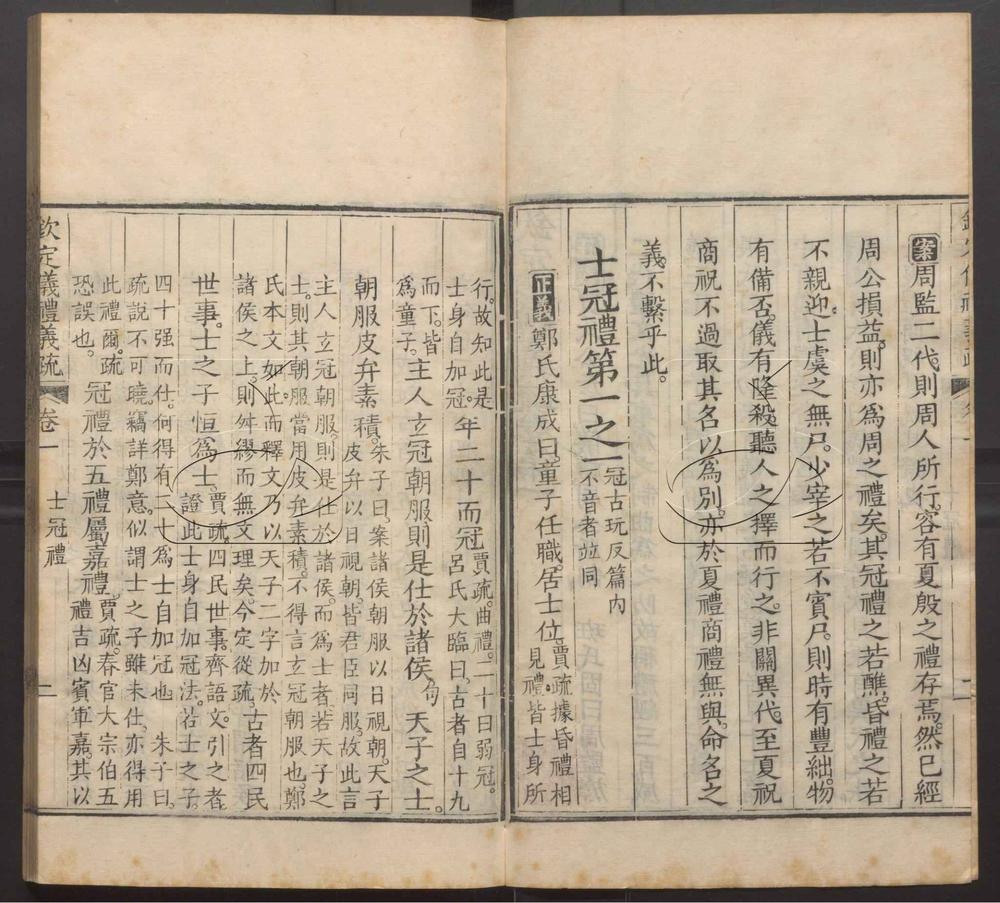 案周監二代。則周人所行。容有夏殷之禮存焉。然已經
周公損益。則亦為周之禮矣。其冠禮之若醮。昏禮之若
不親迎。士虞之無尸。少宰之若不賓尸。則時有豐絀。物
有備否。儀有隆殺。聽人之擇而行之。非關異代。至夏祝
商祝不過取其名以為別。亦於夏禮商禮無與。命名之
義。不繫乎此。
士冠禮第一之一冠古玩反篇內
不音者竝同
正義鄭氏康成曰童子任職。居士位。賈疏據昏禮相
見禮。皆士身所
行。故知此是
士身自加冠。年二十而冠賈疏。曲禮。二十曰弱冠。
呂氏大臨曰。古者自十九
而下。皆
為童子。主人玄冠朝服則是仕於諸侯。句天子之士。
朝服皮弁素積。朱子曰。案諸侯朝服以日視朝。天子
皮弁以日視朝。皆君臣同服。故此言
主人玄冠朝服。則是仕於諸侯。而為士者。若天子之
士。則其朝服當用皮弁素積。不得言玄冠朝服也。鄭
氏本文如此。而釋文乃以天子二字加於
諸侯之上。則舛繆而無文理矣。今定從疏。古者四民
世事。士之子恒為士。賈疏。四民世事。齊語文。引之者。
證此士身自加冠法。若士之子。
四十強而仕。何得有二十為士自加冠也。朱子曰。
疏說不可曉。竊詳鄭意。似謂士之子雖未仕。亦得用
此禮爾。疏
恐誤也。冠禮於五禮屬嘉禮。賈疏。春官大宗伯五
禮吉凶賓軍嘉。其以
欽定儀禮義疏
卷一
士冠禮
二